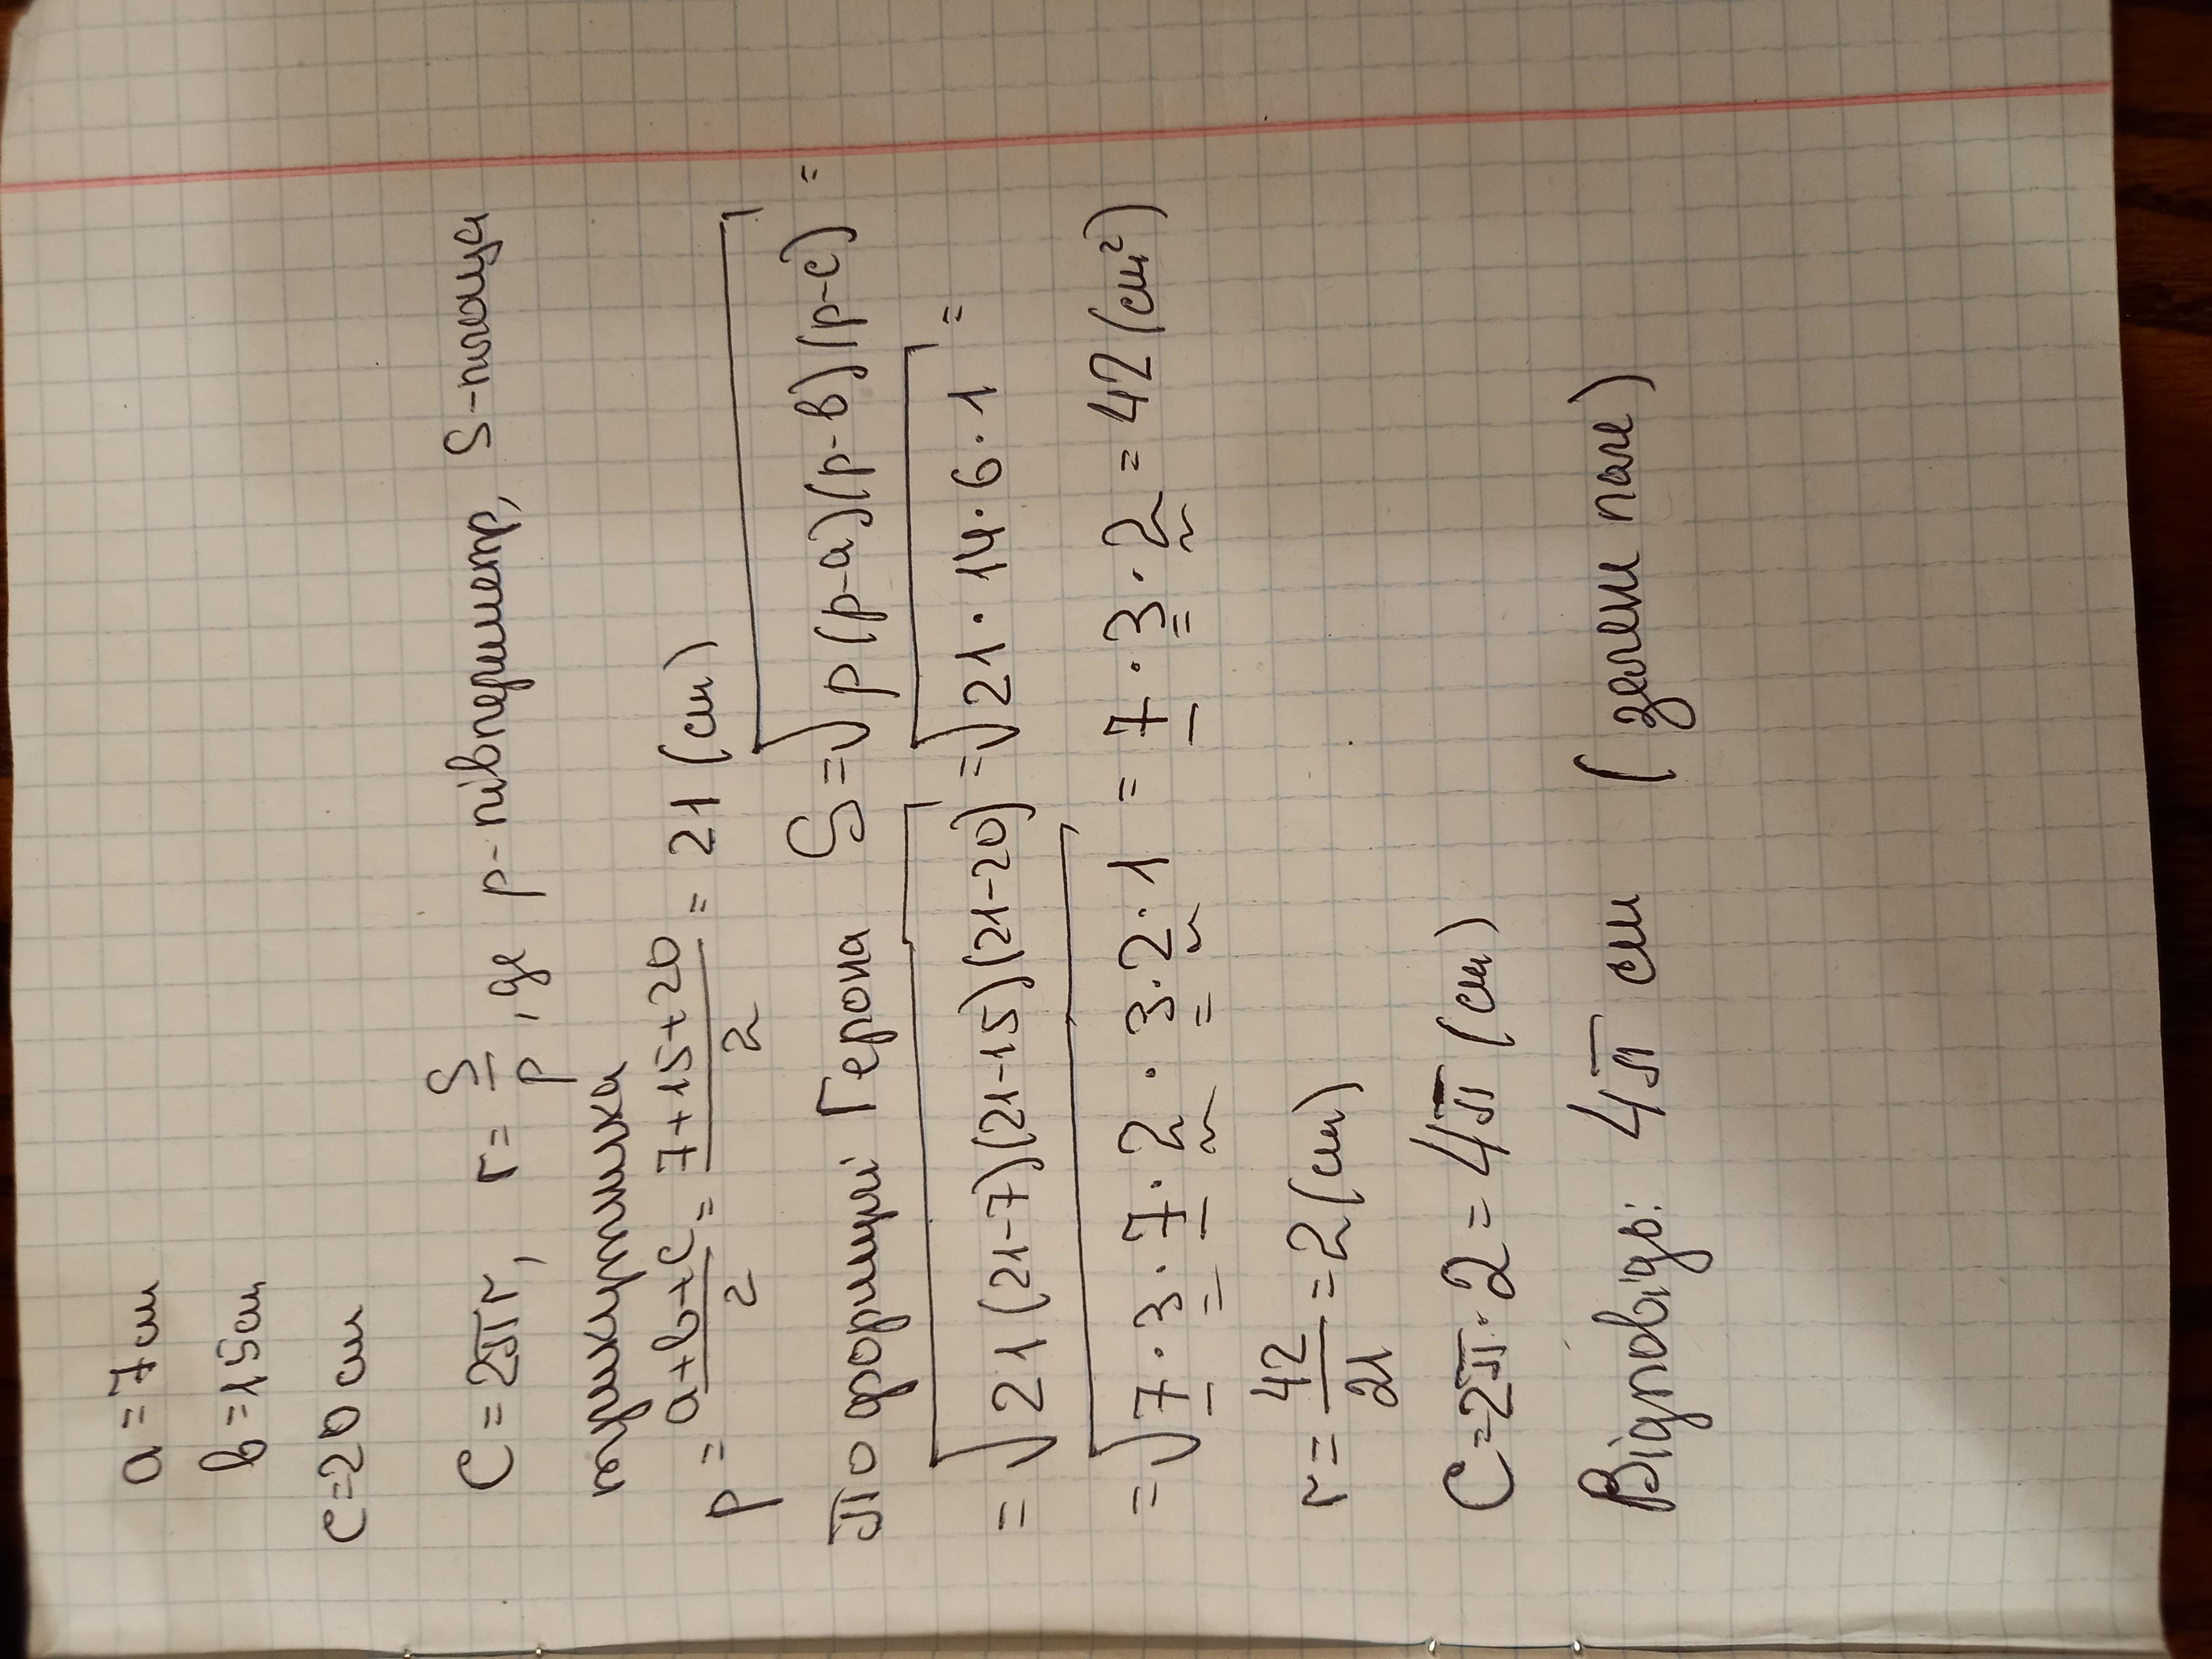 a=7см
b=15см
c=20 см
C=2πr, r=S/p, де p-півпериметр, S-площа
трикутника
p=(a+b+c)/2=(7+15+20)/2=21(см)
По формулі Герона S=√(p(p-a)(p-b)(p-c))=
=√(21(21-7)(21-15)(21-20))=√(21·14·6·1)=
=√(7·3·7·2·3·2·1)=7·3·2=42(см²)
r=42/21=2(см)
C=2π·2=4π(см)
Відповідь: 4π см (зелени поле)